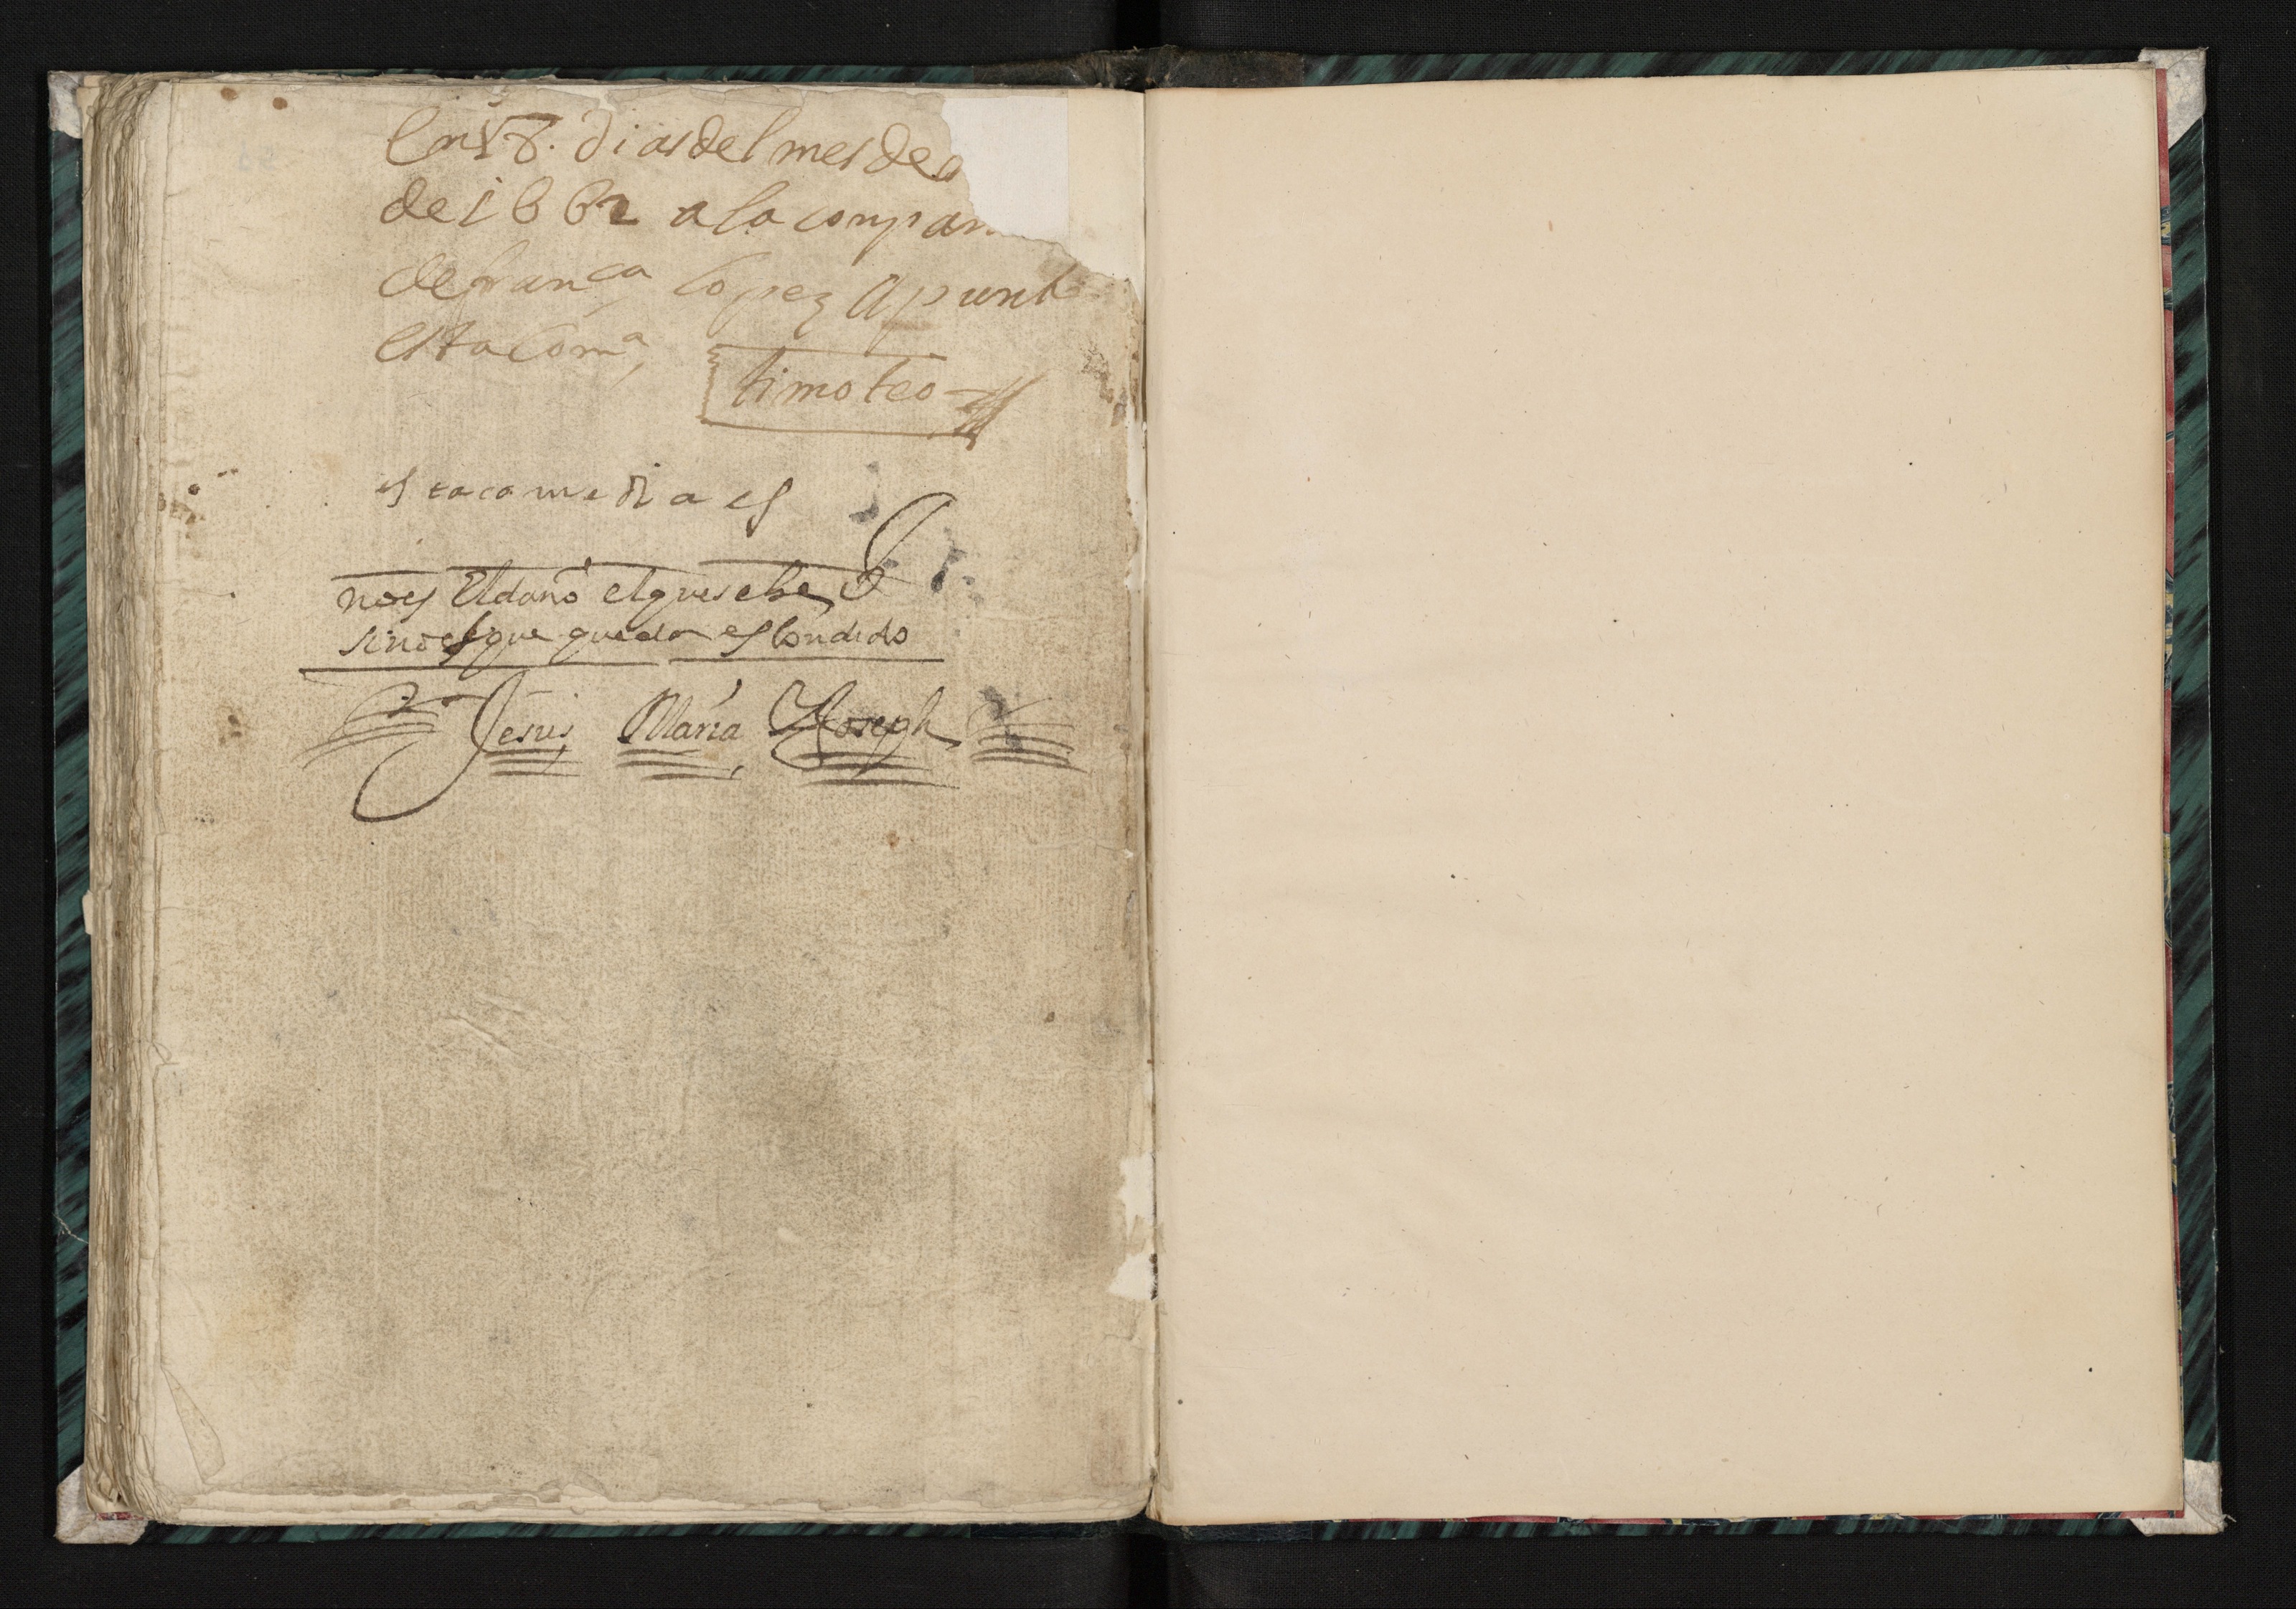 En 18. dias del mes de a
de 1662 a la compan
de fran^ca lopez apunt
esta Com^a
timoteo
esta comedia es
no es El daño el que se be
sino el que queda escondido
Jesus Maria Joseph